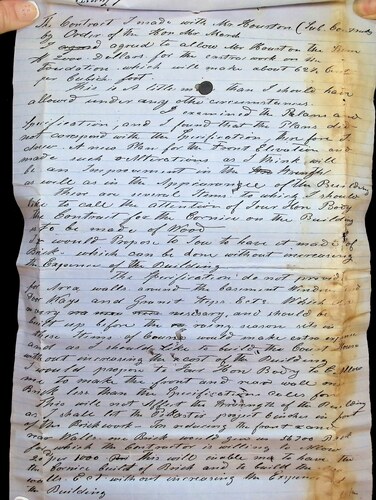 The Contract I made with Mr Houston (Sub
by Order of the Hon Mr Marsh
I agreed to allow Mr Houston the Sum
of Two Dollars for the extra work on the
which will make about 62½ Cts
per Cubick foot.
This is a little than I should have
allowed under any other circumstances
I examined the Plans and
Specification and I found that the Plans did
not correspond with the Specification therefore I
drew a new Plan for the Front Elevation and
made such alterations as I think will
be an Improvement in the Strength
as well as in the Appearance of the Building
There are several Items to which I should
like to call the attention of Your Hon Body
the Contract for the Cornice on the Building
is to be made of Wood
I would Propose to You to have it made of
Brick which can be done without increasing
the Expence of the Building
The Specification do not provide
for Area walls around the Basement Windows
Door Ways and Granit Steps Etc. Which is
very and should be
built up before the rainy season sets in
these Items of Course would make extra expence
and in order to build the Court House
without increasing the cost of the Building
I would propose to Your Hon Body to allow
me to make the front and rear wall one
Brick less than the Specification calls for
This will not affect the Strength of the Building
as I shall let the Pilasters project in front
of the Brickwork. In reducing the front and
rear Walls one Brick would give us 34700 Brick
which the Contractor is willing to allow
20 per 1000 and this will enable me to have
the Cornice built of Brick and to build the
walls Ect without increasing the Expence of
the Building